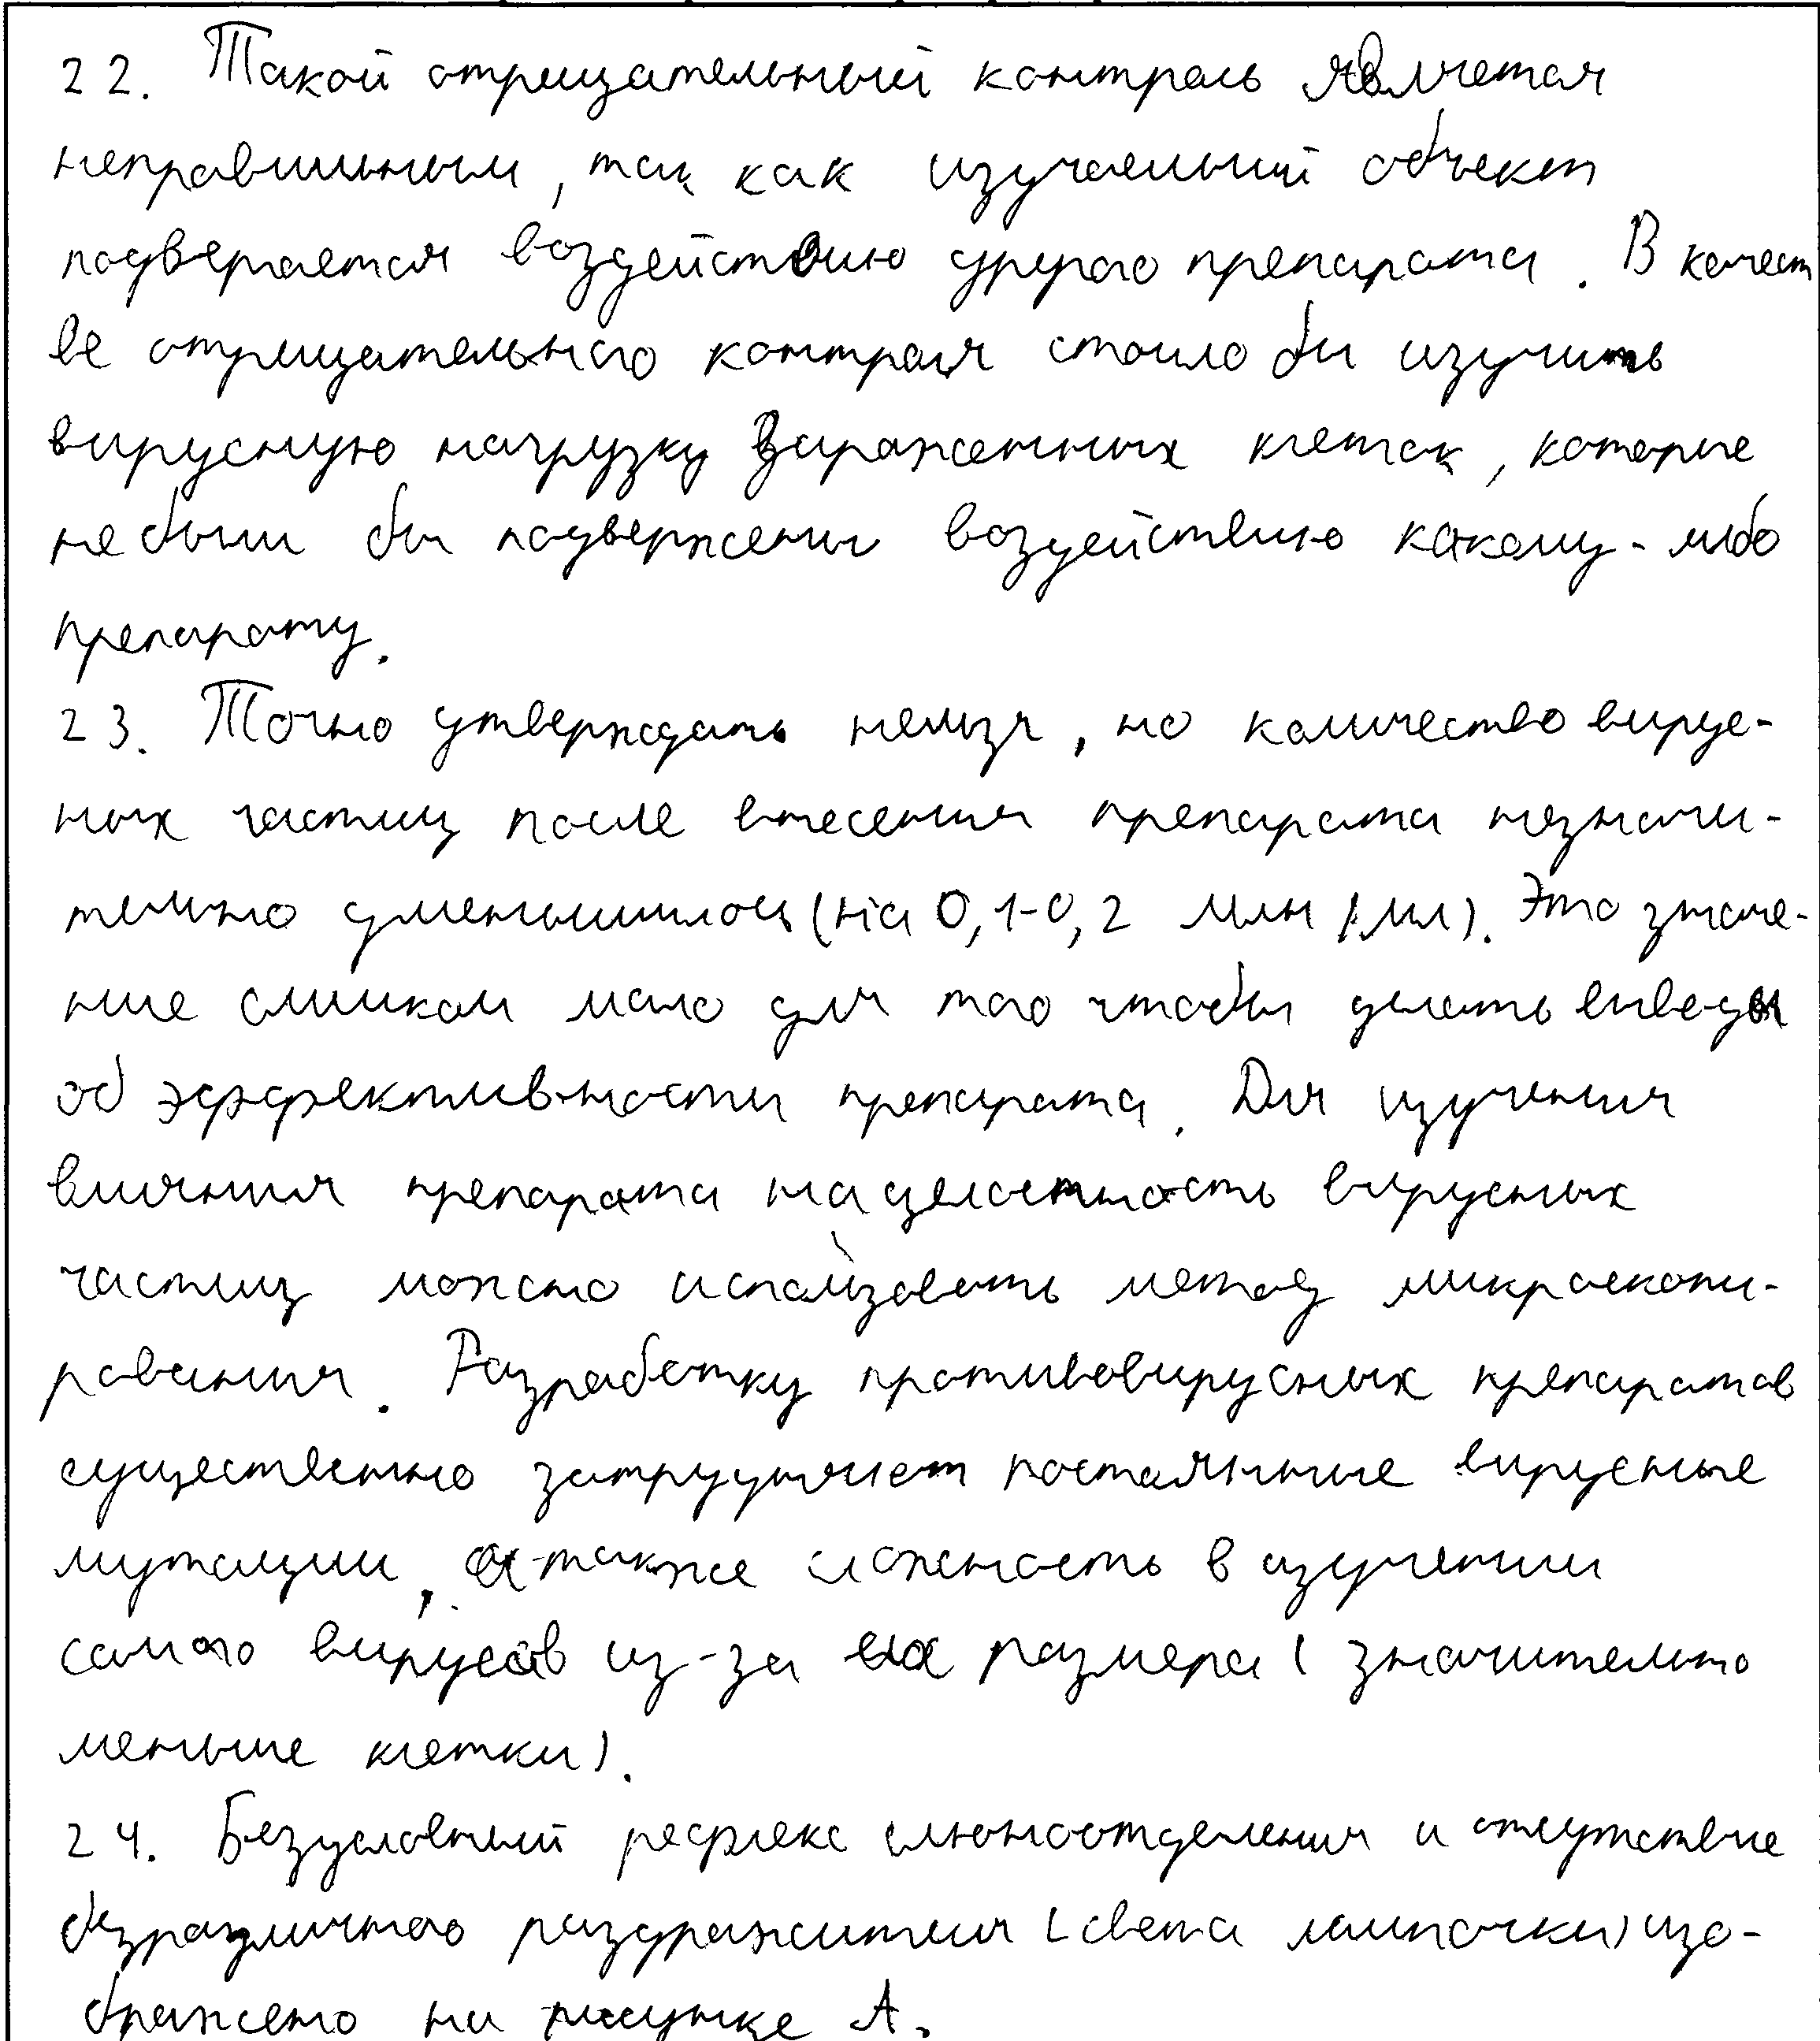 22. Такой отрицательный контроль является
неправильным, так как изучаемый объект
подвергается воздействию другого препарата. В качест
ве отрицательного контроля стоило бы изучить
вирусную нагрузку зараженных клеток, которые
не были бы подвержены воздействию какому-либо
препарату.
23. Точно утверждать нельзя, но количество вирус-
ных частиц после внесения препарата незначи-
тельно уменьшилось (на 0,1-0,2 млн/мл). Это значе-
ние слишком мало для того чтобы делать выводы
об эффективности препарата. Для изучения
влияния препарата на целостность вирусных
частиц можно использовать метод микроскопи-
рования. Разработку противовирусных препаратов
существенно затрудняет постоянные вирусные
мутации, а также сложность в изучении
самого вирусов из-за их размера (значительно
меньше клетки).
24. Безусловный рефлекс слюноотделения и отсутствие
безразличного раздражителя (света лампочки) изо-
бражено на рисунке А.